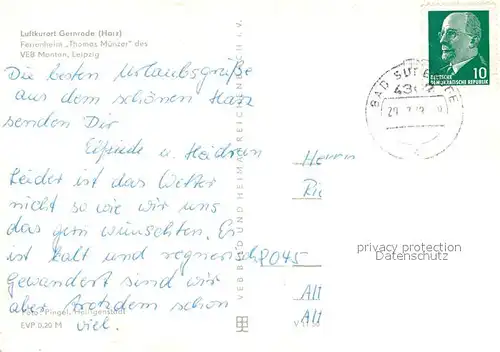 Luftkurort Gernrode (Harz)
Ferienheim „Thomas Münzer" des
VEB Montan, Leipzig
Die besten Urlaubsgrüße
aus dem schönen Harz
senden Dir
Elfriede u. Heidrun
Leider ist das Wetter
nicht so wie wir uns
das gern wünschten. Es
ist kalt und regnerisch
Gewandert sind wir
aber trotzdem schon
viel.
Foto: Pingel, Heiligenstadt
EVP 0,20 M
VEB BILD UND HEIMAT REICHENBACH I. V.
BAD SUDERODE
DEUTSCHE
DEMOKRATISCHE REPUBLIK
10
Herrn
8045
Alt
Alt
privacy protection
Datenschutz